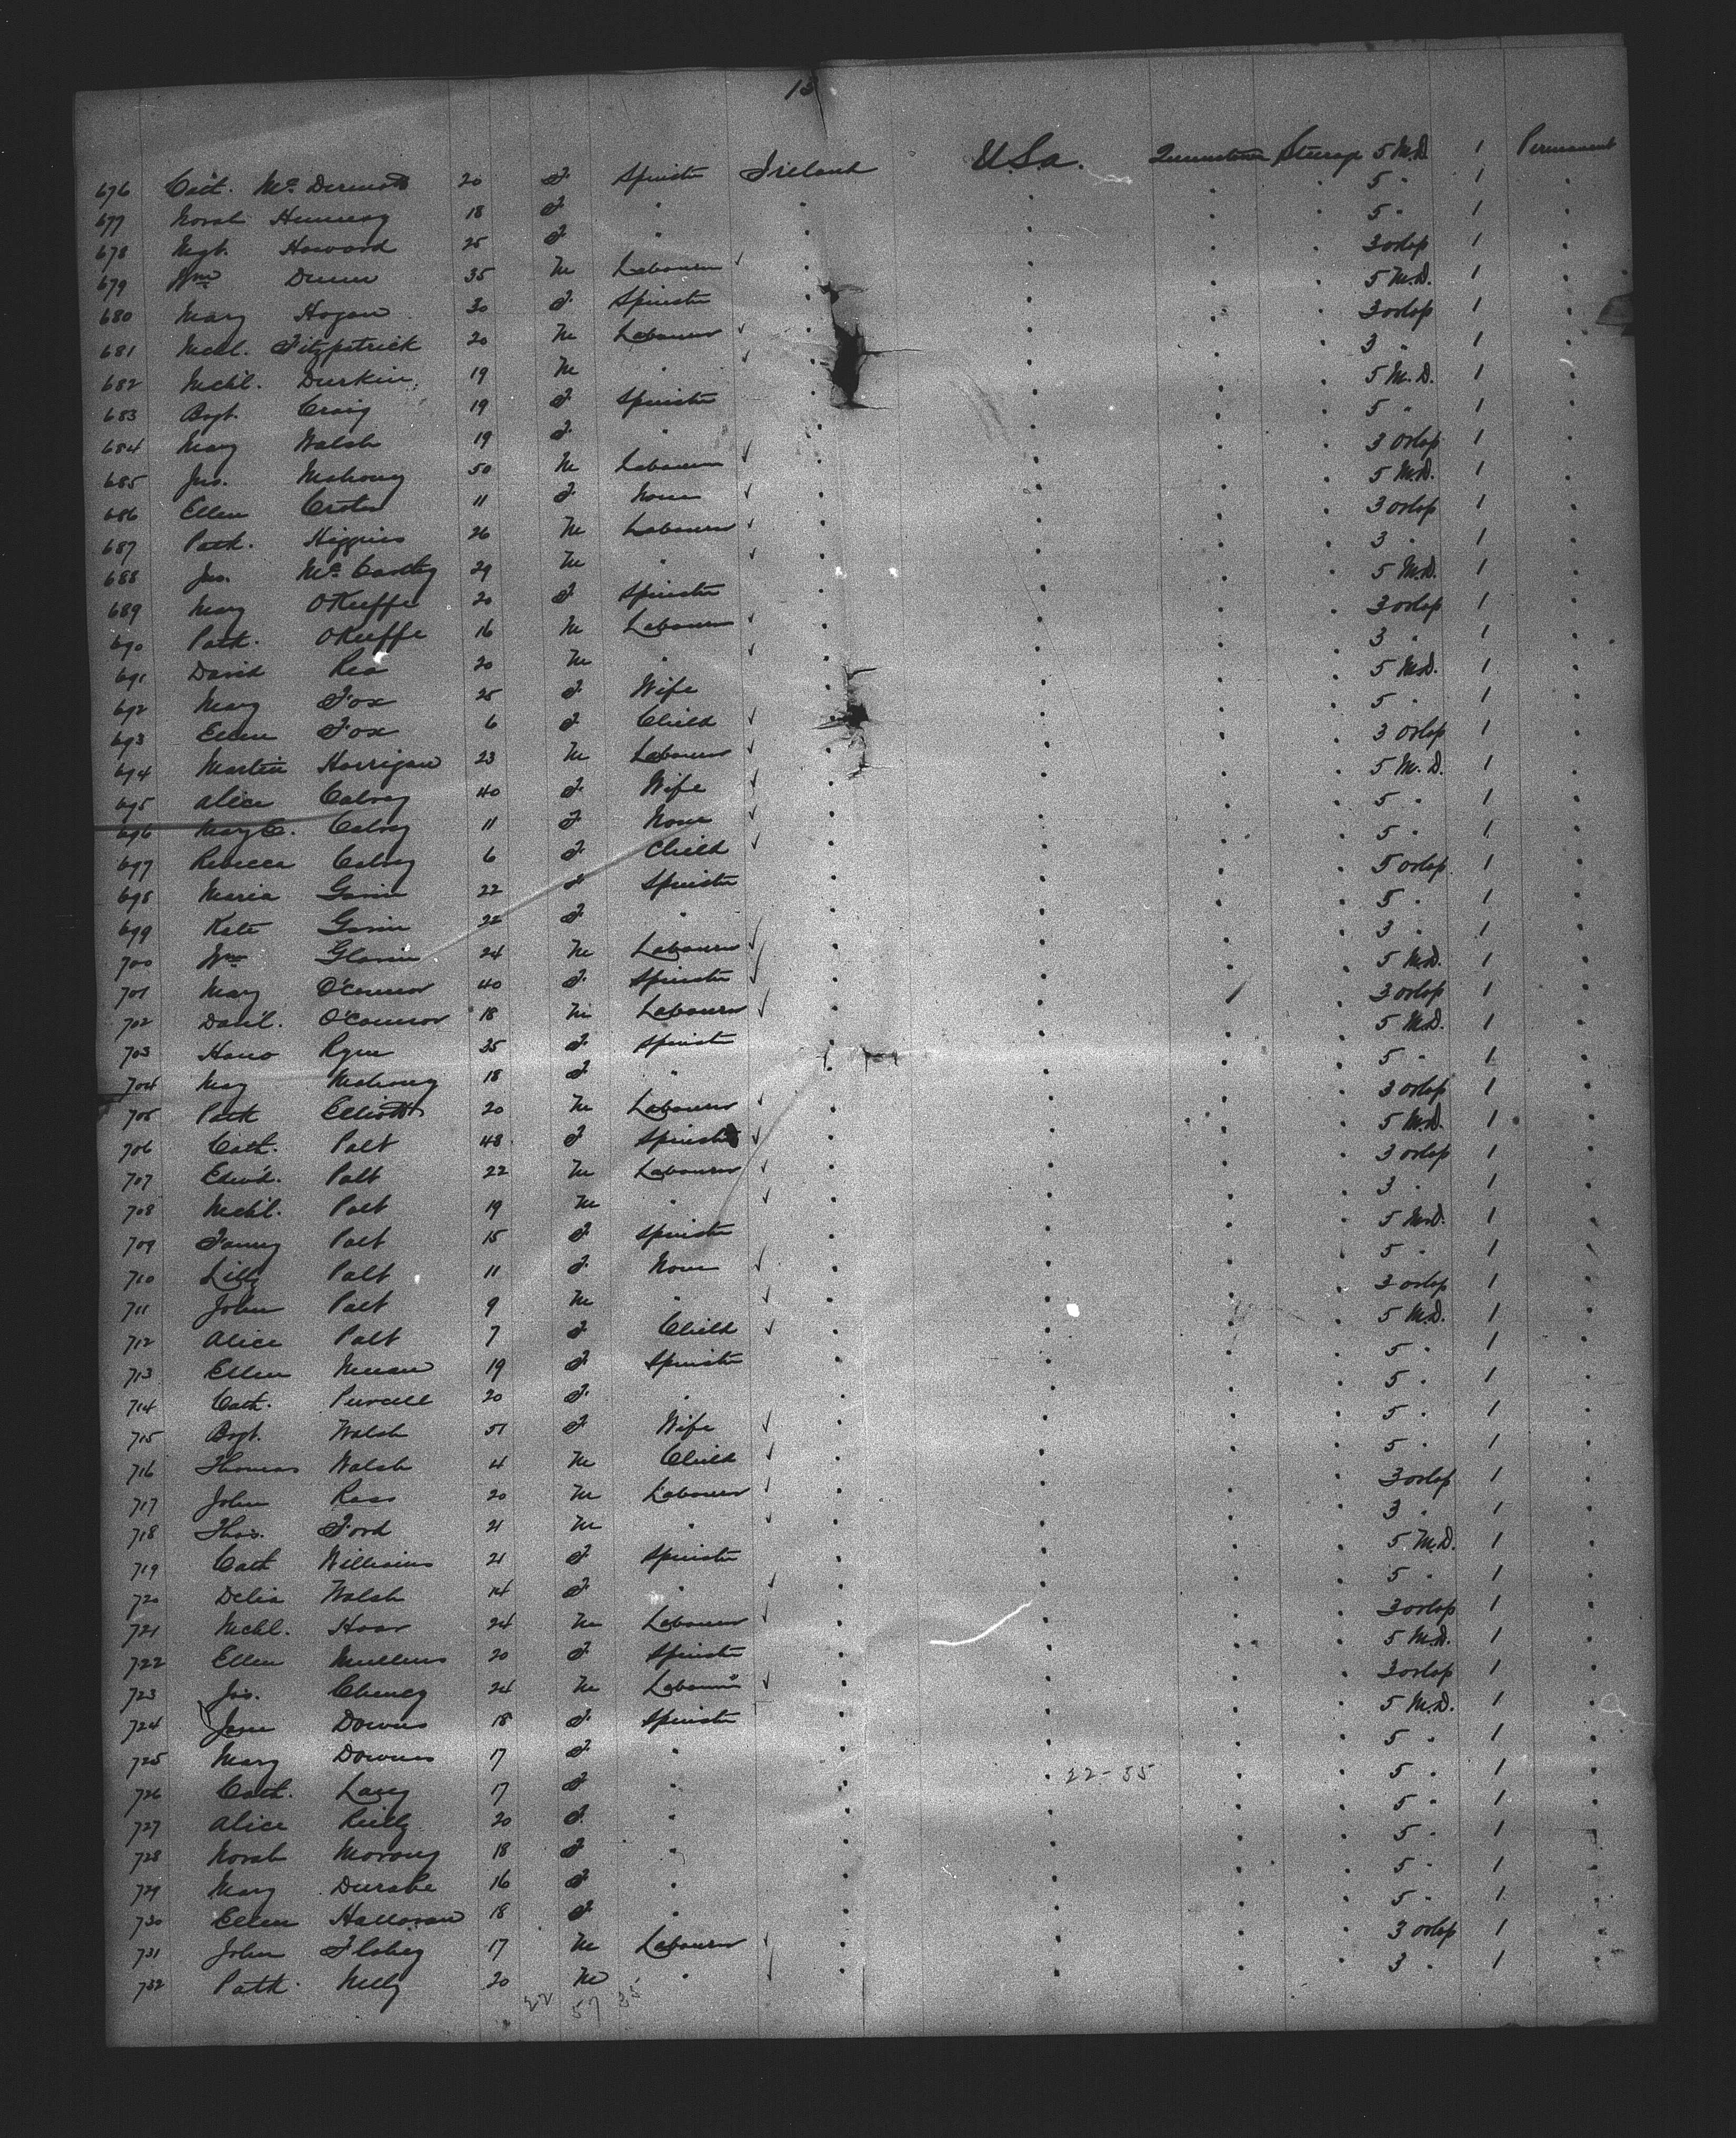 13
676 Cath. McDermott 20 F Spinster Ireland U.S.a. Queenstown Steerage 5 M.D. 1 Permanent
677 Norah 18 F " " " " " 5 " 1 "
678 Mgt. Howard 25 F " " " " " 5 " 1 "
679 Wm Dunn 35 M Labourer " " " " 3 orlop 1 "
680 Mary Hogan 30 F Spinster " " " " 5 M.D. 1 "
681 Michl. Fitzpatrick 20 M Labourer " " " " 3 orlop 1 "
682 Michl. Durkin 19 M " " " " " 3 " 1 "
683 Bgt. Craig 19 F Spinster " " " " 5 M.D. 1 "
684 Mary Walsh 19 F " " " " " 5 " 1 "
685 Jas. Mahony 50 M Labourer " " " " 3 Orlop 1 "
686 Ellen 11 F None " " " " 5 M.D. 1 "
687 Patk. Higgins 26 M Labourer " " " " 3 orlop 1 "
688 Jas. McCarthy 29 M " " " " " 3 " 1 "
689 Mary OKeeffe 20 F Spinster " " " " 5 M.D. 1 "
690 Patk. OKeeffe 16 M Labourer " " " " 3 orlop 1 "
691 David Rea 20 M " " " " " 3 " 1 "
692 Mary Fox 25 F Wife " " " " 5 M.D. 1 "
693 Ellen Fox 6 F Child " " " " 5 " 1 "
694 Martin Horrigan 23 M Labourer " " " " 3 Orlop 1 "
695 Alice Calvey 40 F Wife " " " " 5 M.D. 1 "
696 Mary C. Calvey 11 F None " " " " 5 " 1 "
697 Rebecca Calvey 6 F Child " " " " 5 " 1 "
698 Maria Gavin 22 F Spinster " " " " 5 orlop 1 "
699 Kate Gavin 22 F " " " " " 5 " 1 "
700 Wm Glavin 24 M Labourer " " " " 3 " 1 "
701 Mary O'Connor 40 F Spinster " " " " 5 M.D. 1 "
702 Danl. O'Connor 18 M Labourer " " " " 3 orlop 1 "
703 Hano Ryan 25 F Spinster " " " " 5 M.D. 1 "
704 May Mahony 18 F " " " " " 5 " 1 "
705 Patk Elliott 20 M Labourer " " " " 3 orlop 1 "
706 Cath. Palt 48 F Spinster " " " " 5 M.D. 1 "
707 Edwd. Palt 22 M Labourer " " " " 3 orlop 1 "
708 Michl. Palt 19 M " " " " " 3 " 1 "
709 Fanny Palt 15 F Spinster " " " " 5 M.D. 1 "
710 Lilly Palt 11 F None " " " " 5 " 1 "
711 John Palt 9 M " " " " " 3 orlop 1 "
712 Alice Palt 7 F Child " " " " 5 M.D. 1 "
713 Ellen 19 F Spinster " " " " 5 " 1 "
714 Cath. Purcell 20 F " " " " " 5 " 1 "
715 Bgt. Walsh 51 F Wife " " " " 5 " 1 "
716 Thomas Walsh 4 M Child " " " " 5 " 1 "
717 John Ross 20 M Labourer " " " " 3 orlop 1 "
718 Thos. Ford 21 M " " " " " 3 " 1 "
719 Cath Williams 21 F Spinster " " " " 5 M.D. 1 "
720 Delia Walsh 14 F " " " " " 5 " 1 "
721 Michl. Hoar 24 M Labourer " " " " 3 orlop 1 "
722 Ellen Mullens 20 F Spinster " " " " 5 M.D. 1 "
723 Jas. 24 M Labourer " " " " 3 orlop 1 "
724 Jane Downes 18 F Spinster " " " " 5 M.D. 1 "
725 Mary Downes 17 F " " " " " 5 " 1 "
726 Cath. Lacey 17 F " " " 22-35 " " 5 " 1 "
727 Alice Reilly 20 F " " " " " 5 " 1 "
728 Norah Morony 18 F " " " " " 5 " 1 "
729 Mary 16 F " " " " " 5 " 1 "
730 Ellen Halloran 18 F " " " " " 5 " 1 "
731 John Flahey 17 M Labourer " " " " 3 orlop 1 "
732 Patk. 20 M " " " " " 3 " 1 "
22 57 35